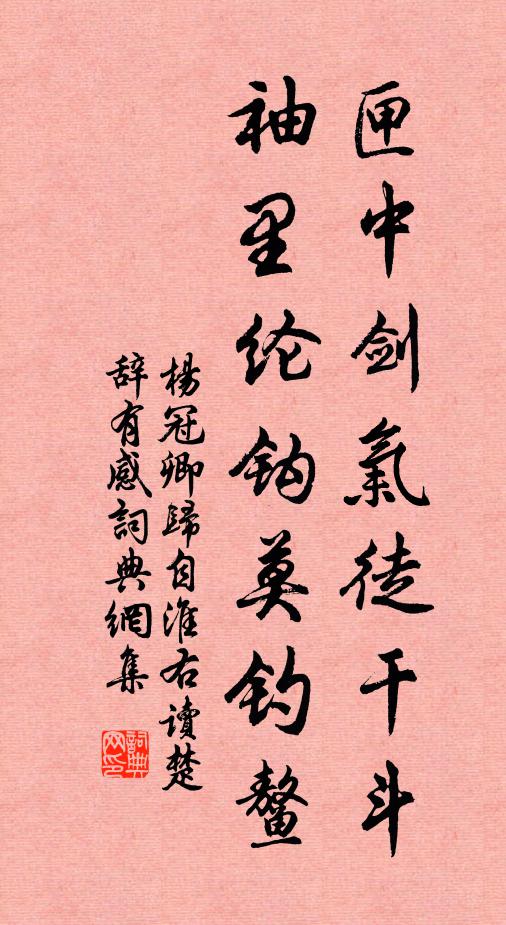 匣中剑氣徒干斗
袖里纶钩莫钓鳌
楊冠卿歸自淮右讀楚
辞有感詞典網集
詞典
网印